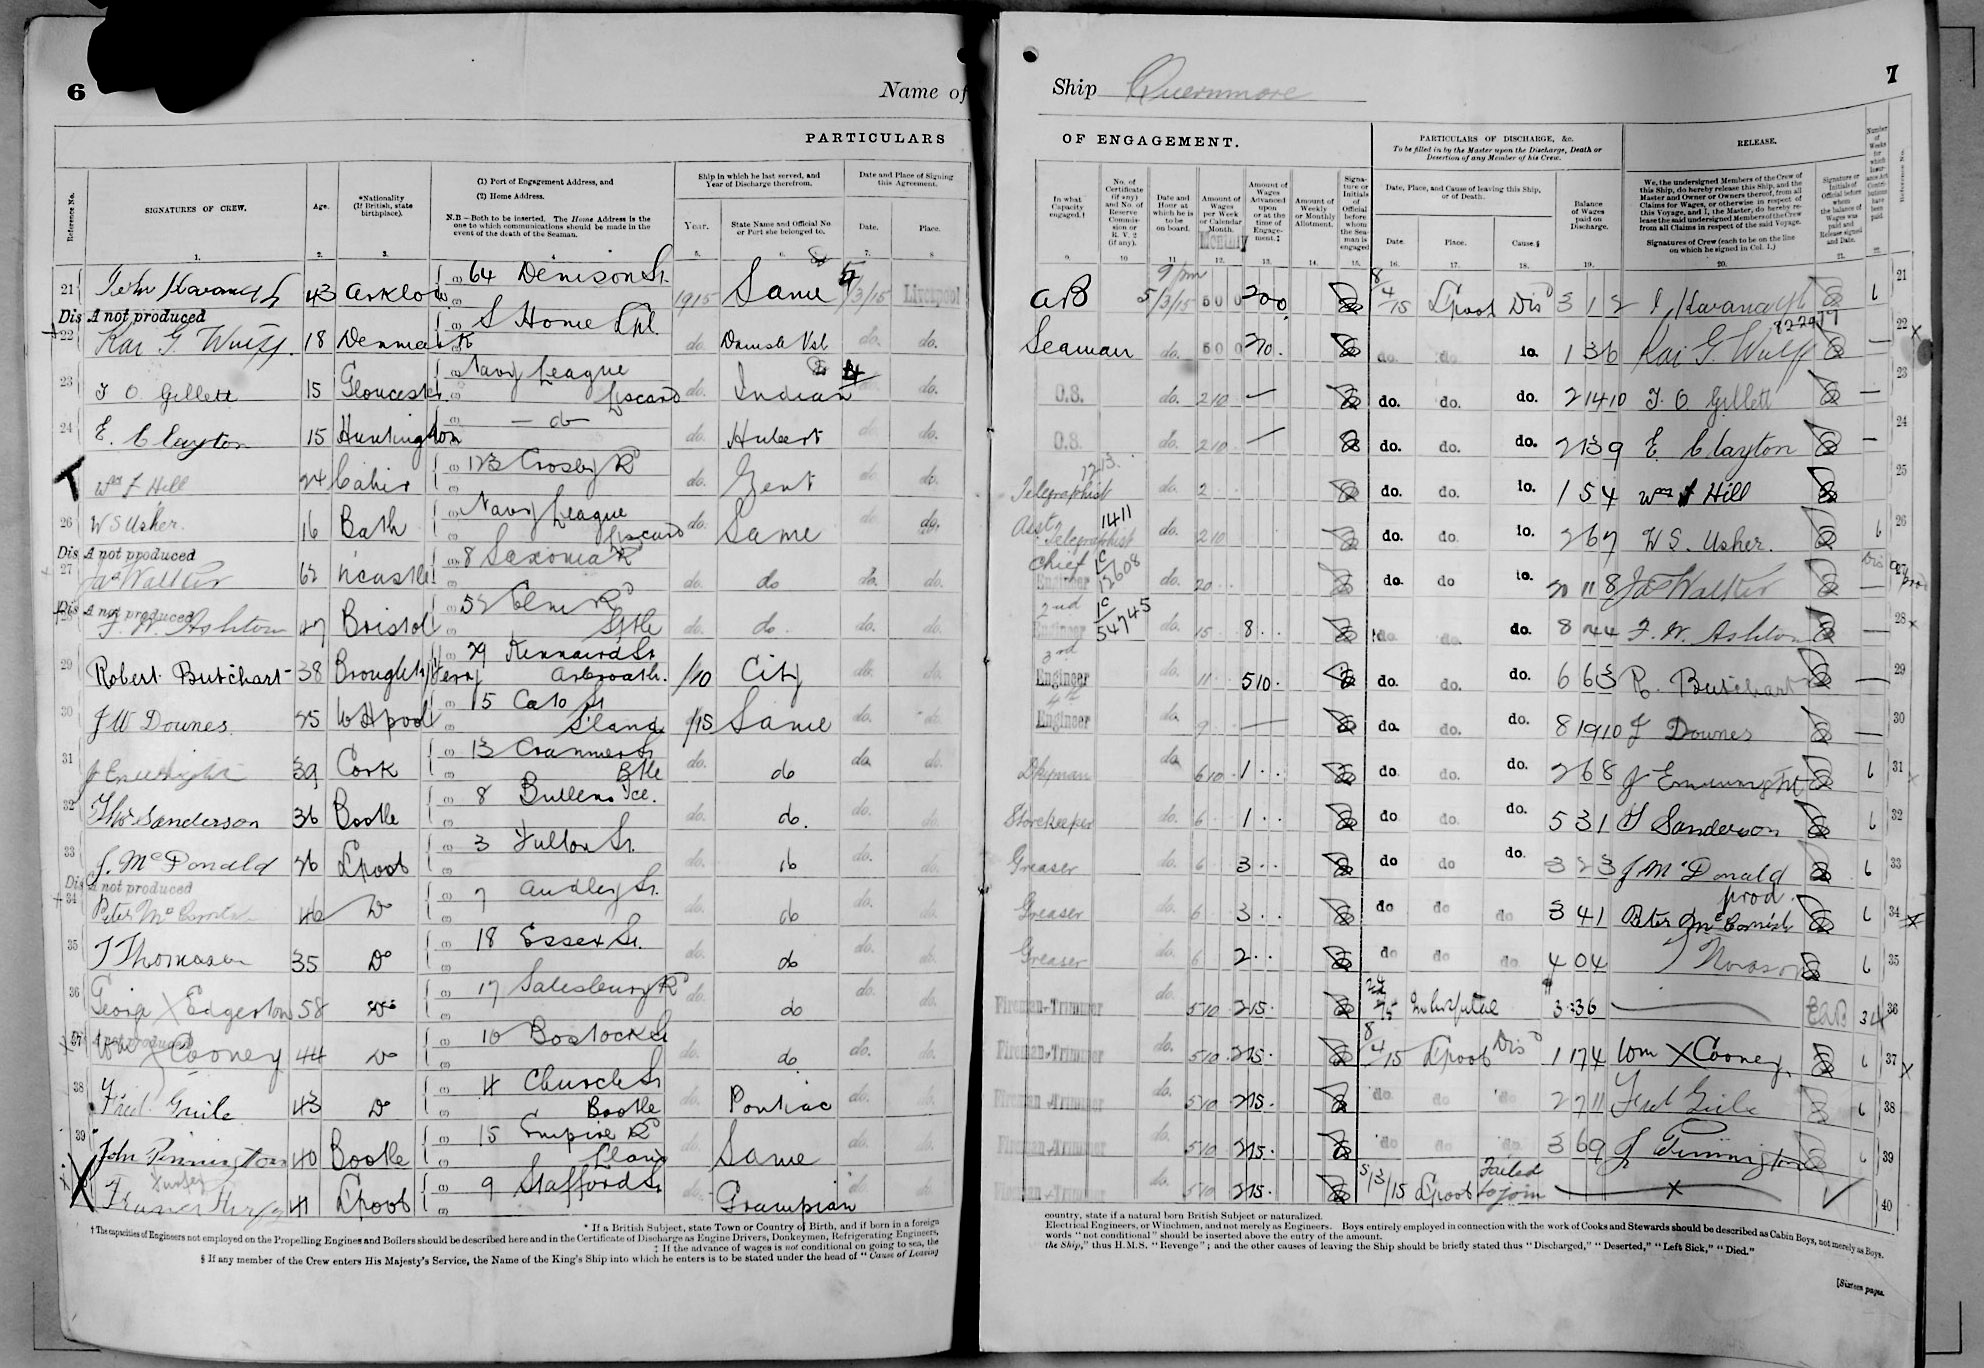 6
Name of
PARTICULARS
Reference No.
SIGNATURES OF CREW.
Age.
*Nationality (If British, state birthplace).
(1) Port of Engagement Address, and
(2) Home Address.
N.B.—Both to be inserted. The Home Address is the one to which communications should be made in the event of the death of the Seaman.
Ship in which he last served, and Year of Discharge therefrom.
Year.
State Name and Official No. or Port she belonged to.
Date and Place of Signing this Agreement.
Date.
Place.
1. 2. 3. 4. 5. 6. 7. 8
21 John Kavanagh 43 Arklow 64 Denison St. 1915 Same 4/3/15 Liverpool
Dis A not produced
22 Kai G. Wulff. 18 Denmark S Home Lpl. do. Danish Vsl do. do.
23 T O Gillett 15 Gloucester Navy League Liscard do. Indian 4 do.
24 E. Clayton 15 Huntingdon — do — do. Hubert do. do.
Wm F Hill 24 Cahir 123 Crosby Rd do. Zent do. do.
26 W S Usher. 16 Bath Navy League Liscard do. Same do. do.
Dis A not produced
27 Jas Walker 62 N'castle 8 Saxonia Rd do. do do. do.
Dis A not produced
28 F. W. Ashton 47 Bristol 52 Elm Rd Sthe do. do. do. do.
29 Robert Butchart 38 Broughty Ferry 29 Kennaird St Arbroath. 1/10 City do. do.
30 J W Downes 25 W Hpool 15 Cato St Skand /15 Same do. do.
31 J Enwright 39 Cork 13 Cranmer St Btle do. do do. do.
32 Thos Sanderson 36 Bootle 8 Bullens Tce. do. do. do. do.
33 J. McDonald 26 L'pool 3 Fulton St. do. do do. do.
Dis A not produced
34 Peter McCornish 46 Do 7 Audley St. do. do do. do.
35 T Thomason 35 Do 18 Essex St. do. do do. do.
36 George X Edgerton 58 Do 17 Salesbury Rd do. do do. do.
A not produced
37 Wm X Cooney 44 Do 10 Bostock St do. do do. do.
38 Fred. Guile 43 Do 4 Church St Bootle do. Pontiac do. do.
39 John Pinnington 40 Bootle 15 Empire Rd L'land do. Same do. do.
41 L'pool 9 Stafford St do. Grampian do. do.
* If a British Subject, state Town or Country of Birth, and if born in a foreign
† The capacities of Engineers not employed on the Propelling Engines and Boilers should be described here and in the Certificate of Discharge as Engine Drivers, Donkeymen, Refrigerating Engineers,
‡ If the advance of wages is not conditional on going to sea, the
§ If any member of the Crew enters His Majesty's Service, the Name of the King's Ship into which he enters is to be stated under the head of "Cause of Leaving
Ship Quernmore
7
OF ENGAGEMENT.
PARTICULARS OF DISCHARGE, &c.
To be filled in by the Master upon the Discharge, Death or Desertion of any Member of his Crew.
RELEASE.
In what Capacity engaged.†
No. of Certificate (if any) and No. of Reserve Commission or R. V. 2 (if any).
Date and Hour at which he is to be on board.
Amount of Wages per Week or Calendar Month.
Monthly
Amount of Wages Advanced upon or at the time of Engagement.‡
Amount of Weekly or Monthly Allotment.
Signature or Initials of Official before whom the Seaman is engaged
Date, Place, and Cause of leaving this Ship, or of Death.
Date. Place. Cause.§
Balance of Wages paid on Discharge.
We, the undersigned Members of the Crew of this Ship, do hereby release this Ship, and the Master and Owner or Owners thereof, from all Claims for Wages, or otherwise in respect of this Voyage, and I, the Master, do hereby release the said undersigned Members of the Crew from all Claims in respect of the said Voyage.
Signatures of Crew (each to be on the line on which he signed in Col. 1.)
Signature or Initials of Official before whom the balance of Wages was paid and Release signed and Date.
Number of Weeks for which Insurance Act Contributions have been paid.
Reference No.
9. 10 11 12. 13. 14. 15. 16. 17. 18. 19. 20. 21. 22.
AB 9 pm 5/3/15 5 0 0 200 8/4/15 L'pool Disd 3 1 2 J Kavanagh 6 21
822977
Seaman do. 5 0 0 20. do. do do. 1 3 6 Kai G. Wulff — 22
O.S. do. 2 10 — do. do. do. 2 14 10 T. O Gillett — 23
O.S. do. 2 10 — do. do. do. 2 13 9 E. Clayton — 24
Telegraphist 1213 do. 2 do. do. do. 1 5 4 Wm F Hill 25
Asst Telegraphist 1411 do. 2 10 do. do. do. 2 6 7 W S. Usher. 6 26
Chief Engineer C 12608 do. 20 do. do do. 20 11 8 Jas Walker 27
2nd Engineer 1C 54745 do. 15 8 do. do. do. 8 24 4 F. W. Ashton — 28
3rd Engineer 11 5 10 do. do. do. 6 6 3 R. Butchart — 29
4th Engineer 9 — do. do. do. 8 19 10 J Downes — 30
Dkyman do. 6 10 1 do. do. do. 2 6 8 J Enwright 6 31
Storekeeper do. 6 1 do do. do. 5 3 1 T Sanderson 6 32
Greaser do. 6 3 do do do. 3 2 3 J McDonald 6 33
prod.
Greaser do. 6 3 do do do 3 4 1 Peter McCornish 6 34
Greaser do. 6 2 do do do. 4 0 4 6 35
Fireman-Trimmer do. 5 10 215 In hospital 3 36 — 36
Fireman-Trimmer do. 5 10 215 8/4/15 L'pool Disd 1 17 4 Wm X Cooney. 6 37
Fireman-Trimmer do. 5 10 215 do do do 2 7 11 Fred Guile 6 38
Fireman-Trimmer do. 5 10 215 do do do. 3 6 9 J Pinnington 6 39
Fireman-Trimmer do. 5 10 215 5/3/15 L'pool Failed to join — X — 40
country, state if a natural born British Subject or naturalized.
Electrical Engineers, or Winchmen, and not merely as Engineers. Boys entirely employed in connection with the work of Cooks and Stewards should be described as Cabin Boys, not merely as Boys.
words "not conditional" should be inserted above the entry of the amount.
the Ship," thus H.M.S. "Revenge"; and the other causes of leaving the Ship should be briefly stated thus "Discharged," "Deserted," "Left Sick," "Died."
[Sixteen pages.